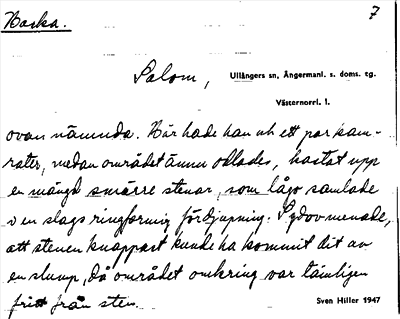 Noska.
7
Salom,
Ullångers sn, Ångermanl. s. doms. tg.
Västernorrl. l.
ovan nämnda. Här hade han och ett par kam-
rater, medan området ännu odlades, kastat upp
en mängd smärre stenar, som lågo samlade
i en slags ringformig fördjupning. Sydov menade,
att stenen knappast kunde ha kommit dit av
en slump, då området omkring var tämligen
fritt från sten.
Sven Hiller 1947